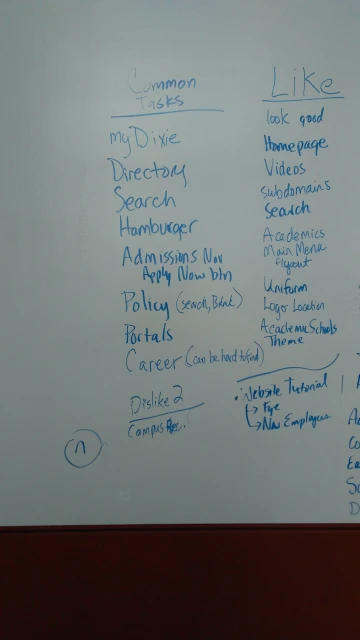 Common
Tasks
myDixie
Directory
Search
Hamburger
Admissions Nav
Apply Now btn
Policy (search, Blink)
Portals
Career (can be hard to find)
Dislike 2
Campus
n
Like
look good
Homepage
Videos
Subdomains
Search
Academics
Main Menu
flyout
Uniform
Logo Location
Academic Schools
Theme
• Website Tutorial
↳ Fye
↳ New Employees